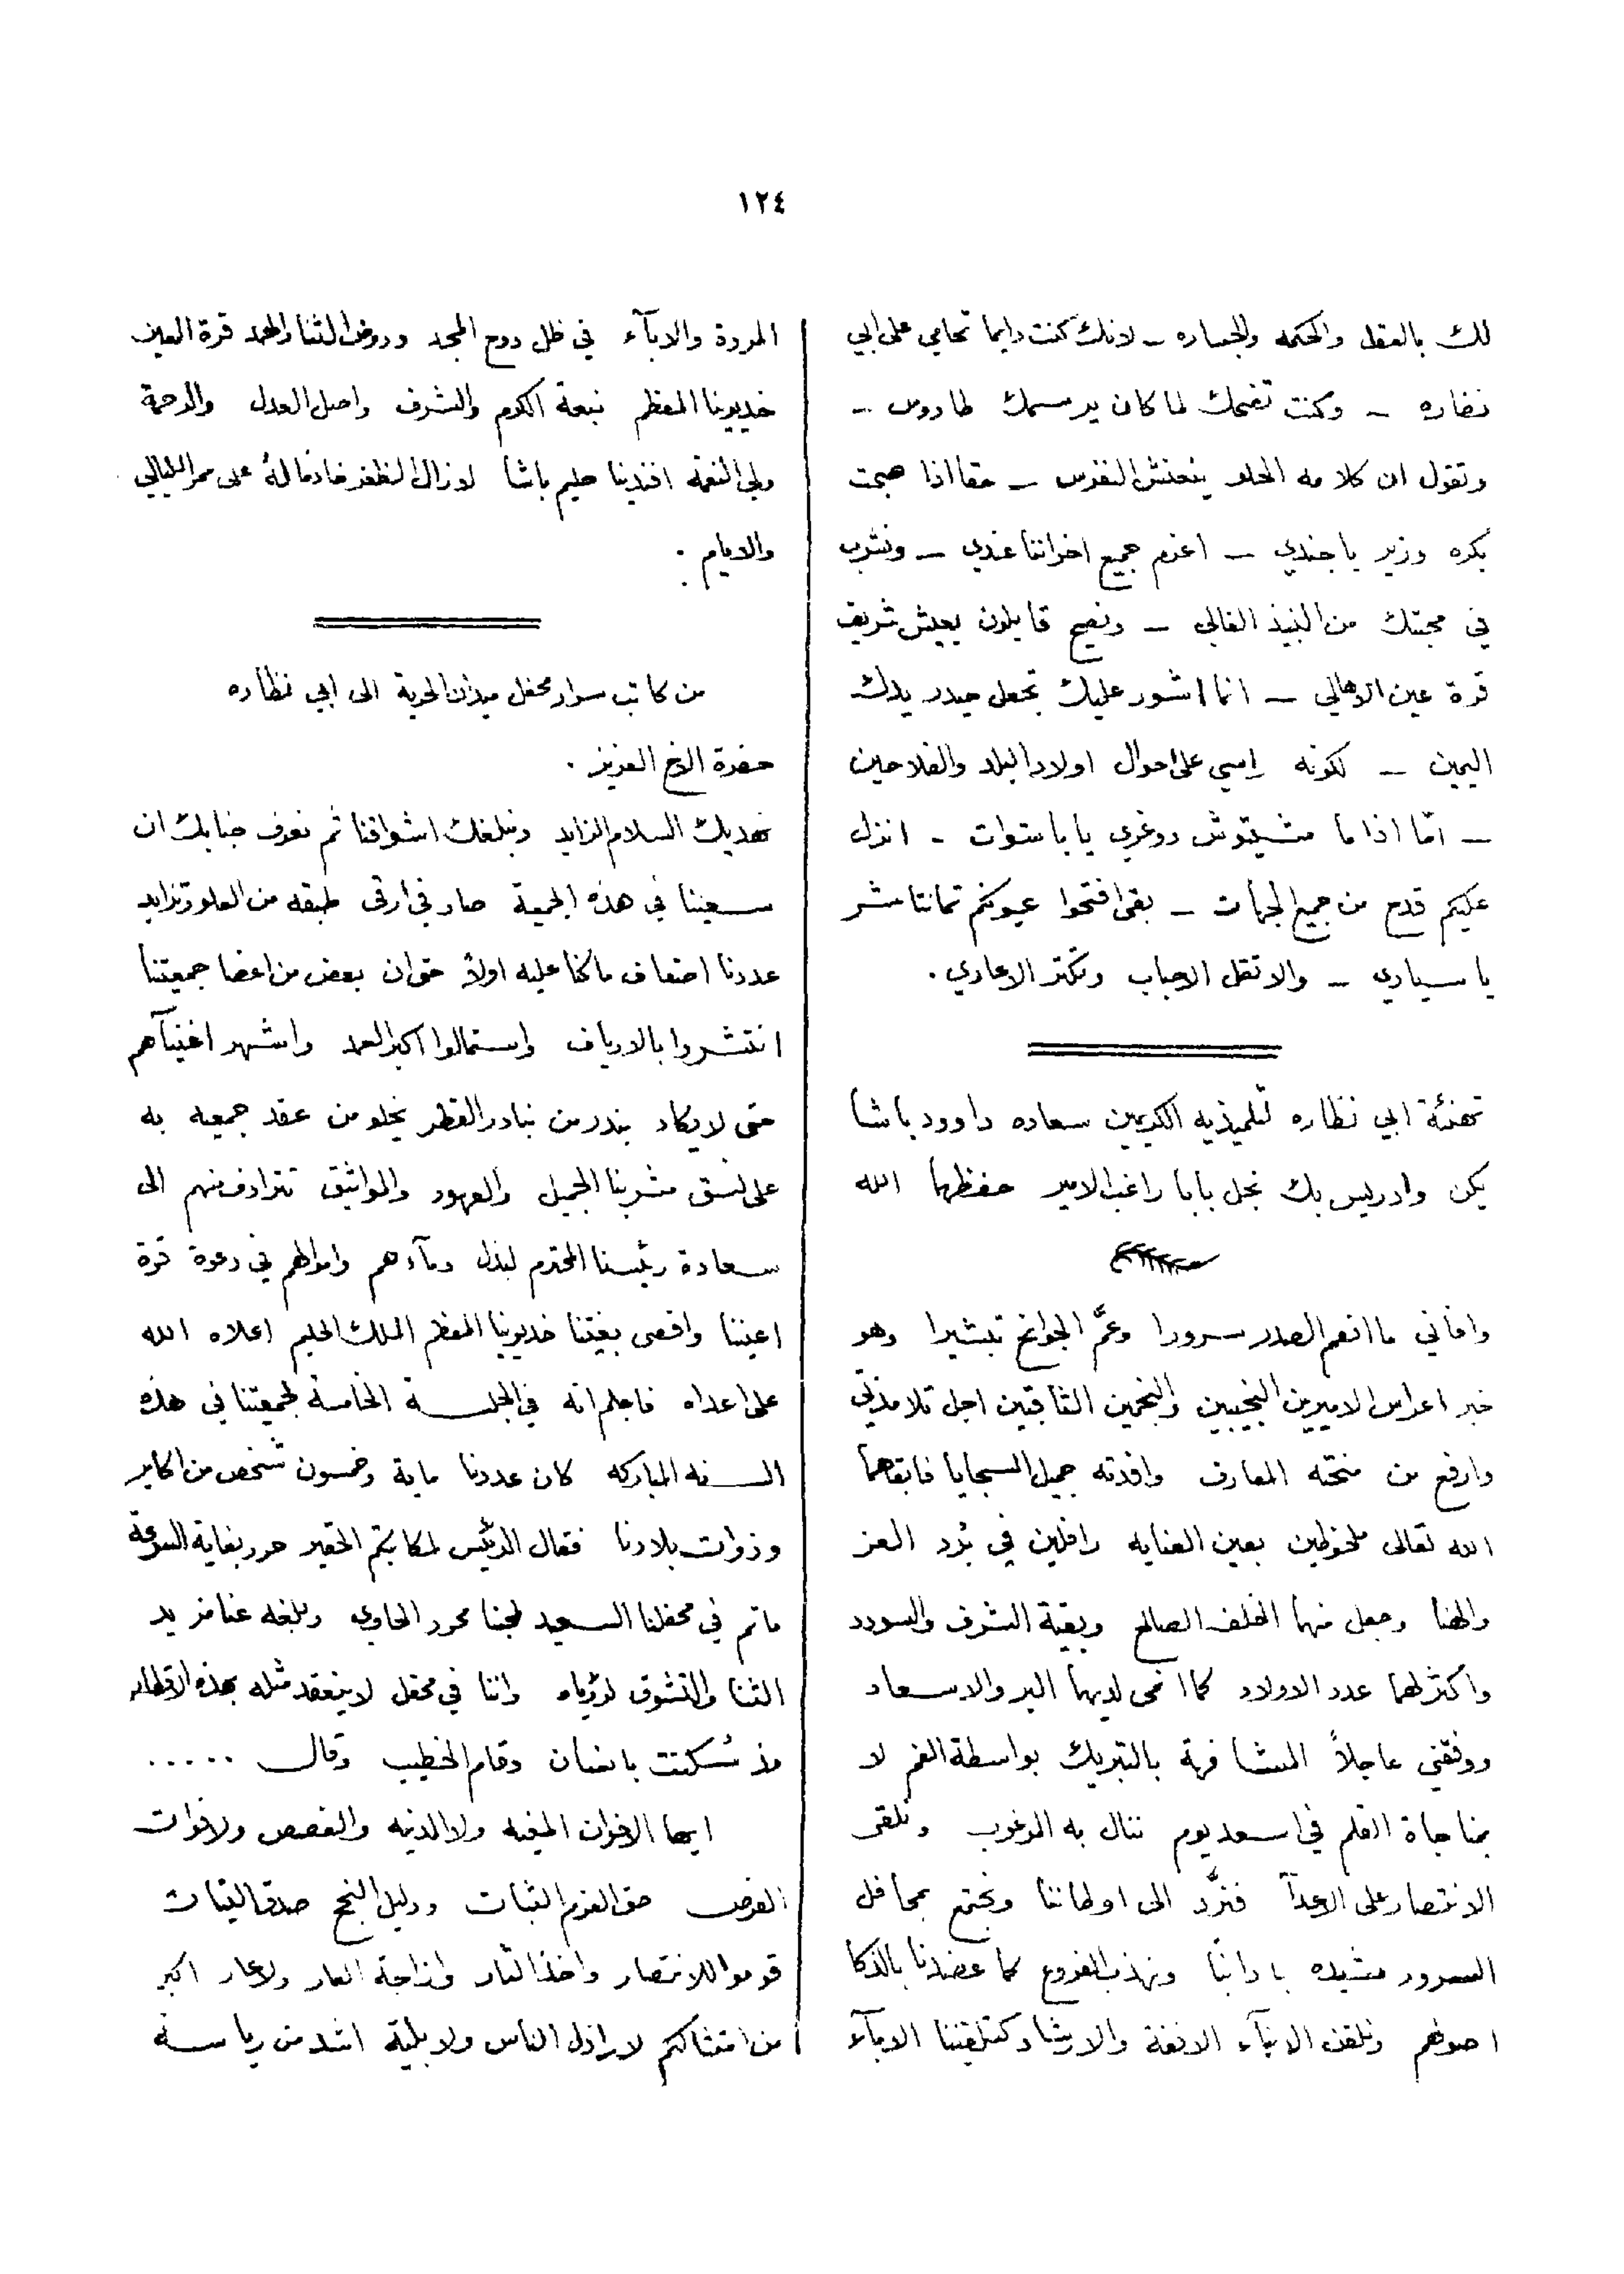 ١٢٤
لك بالعقل والحكمه والجساره ـ لانك كنت دايما تحامي على ابي
نضاره ـ وكنت تضحك لما كان يرسمك طاووس ـ
وتقول ان كلامه الحلو ينعنش النفوس ـ حقا اذا صبحت
بكره وزير يا جندي ـ اعزم جميع اخواتنا عندي ـ ونشرب
في محبتك من النبيذ الغالي ـ ونصيح قايلون يعيش شريف
قرة عين الاهالي ـ انما اشور عليك تجعل حيدر يدك
اليمين ـ لكونه راسي على احوال اولاد البلد والفلاحين
ـ امّا اذا ما مشيتوش دوغري يا باشوات ـ انزل
عليكم قدح من جميع الجهات ـ بقى افتحوا عيونكم تمانتاشر
يا سيادي ـ والا تقل الاحباب وتكتر الاعادي .
تهنئة ابي نظاره لتلميذيه الكريمين سعاده داوود باشا
يكن وادريس بك نجل بابا راغب الامير حفظهما الله
وافاني ما انعم الصدر سرورا وعمَّ الجوانح تبشيرا وهو
خبر اعراس الاميرين النجيبين والنجمين الثاقبين اجل تلامذتي
وارفع من منحته المعارف وافدته جميل السجايا فابقاهما
الله تعالى ملحوظين بعين العنايه رافلين في بُرد العز
والهنا وجعل منهما الخلف الصالح وبقية الشرف والسودد
واكثر لهما عدد الاولاد كما انمى لديهما البر والاسعاد
ووفقني عاجلاً المشافهة بالتبريك بواسطة الفم لا
بمناجاة القلم في اسعد يوم ننال به المرغوب ونلقى
الانتصار على الاعدآ فنردّ الى اوطاننا ونجتمع بمحافل
السرور مشيده بادابنا ونهذب الفروع كما عضدنا بالذكا
اصولهم ونلقن الابنآء الانفة والارشاد كتلقيننا الابآء
المروة والابآء في ظل دوح المجد وروض الثنا والحمد قرة العين
خديوينا المعظم نبعة الكرم والشرف واصل العدل والرحمة
ولي النعمة افندينا حليم باشا لا زال الظفر خادما لهُ على ممر الليالي
والايام .
من كاتب سرار محفل ميدان الحرية الى ابي نظاره
حضرة الاخ العزيز .
نهديك السلام الزايد ونبلغك اشواقنا ثم نعرف جنابك ان
سعينا في هذه الجمعية صار في ارقى طبقه من العلو وتزايد
عددنا اضعاف ما كنا عليه اولاً حتى ان بعض من اعضا جمعيتنا
انتشروا بالارياف واستمالوا اكبر العمد واشهر اغنيآهم
حتى لا يكاد بندر من بنادر القطر يخلو من عقد جمعيه به
على نسق مشربنا الجميل والعهود والمواثيق تترادف منهم الى
سعادة رئيسنا المحترم لبذل دمآءهم واموالهم في دعوة قرة
اعيننا واقصى بغيتنا خديوينا المعظم الملك الحليم اعلاه الله
على اعداه فاعلم انه في الجلسة الخامسة لجمعيتنا في هذه
السنه المباركه كان عددنا ماية وخمسون شخص من اكابر
وذوات بلادنا فقال الرئيس لمكاتبكم الحقير حرر بغاية السرعة
ما تم في محفلنا السعيد لمحبنا محرر الحاوي وبلغه عنا مزيد
الثنا والتشوق لرؤياه واننا في محفل لا ينعقد مثله بهذه الاقطار
مذ سُكتت بانصات وقام الخطيب وقال .....
ايها الاخوان المغيه ولا الدنيه والغصص ولا فوات
الفرص حق العزم الثبات ودليل النجح صدق النيات
قوموا للانتصار واخذ الثار وازاحة العار ولا عار اكبر
من امتثالكم لاراذل الناس ولا بلية اشد من رياسة